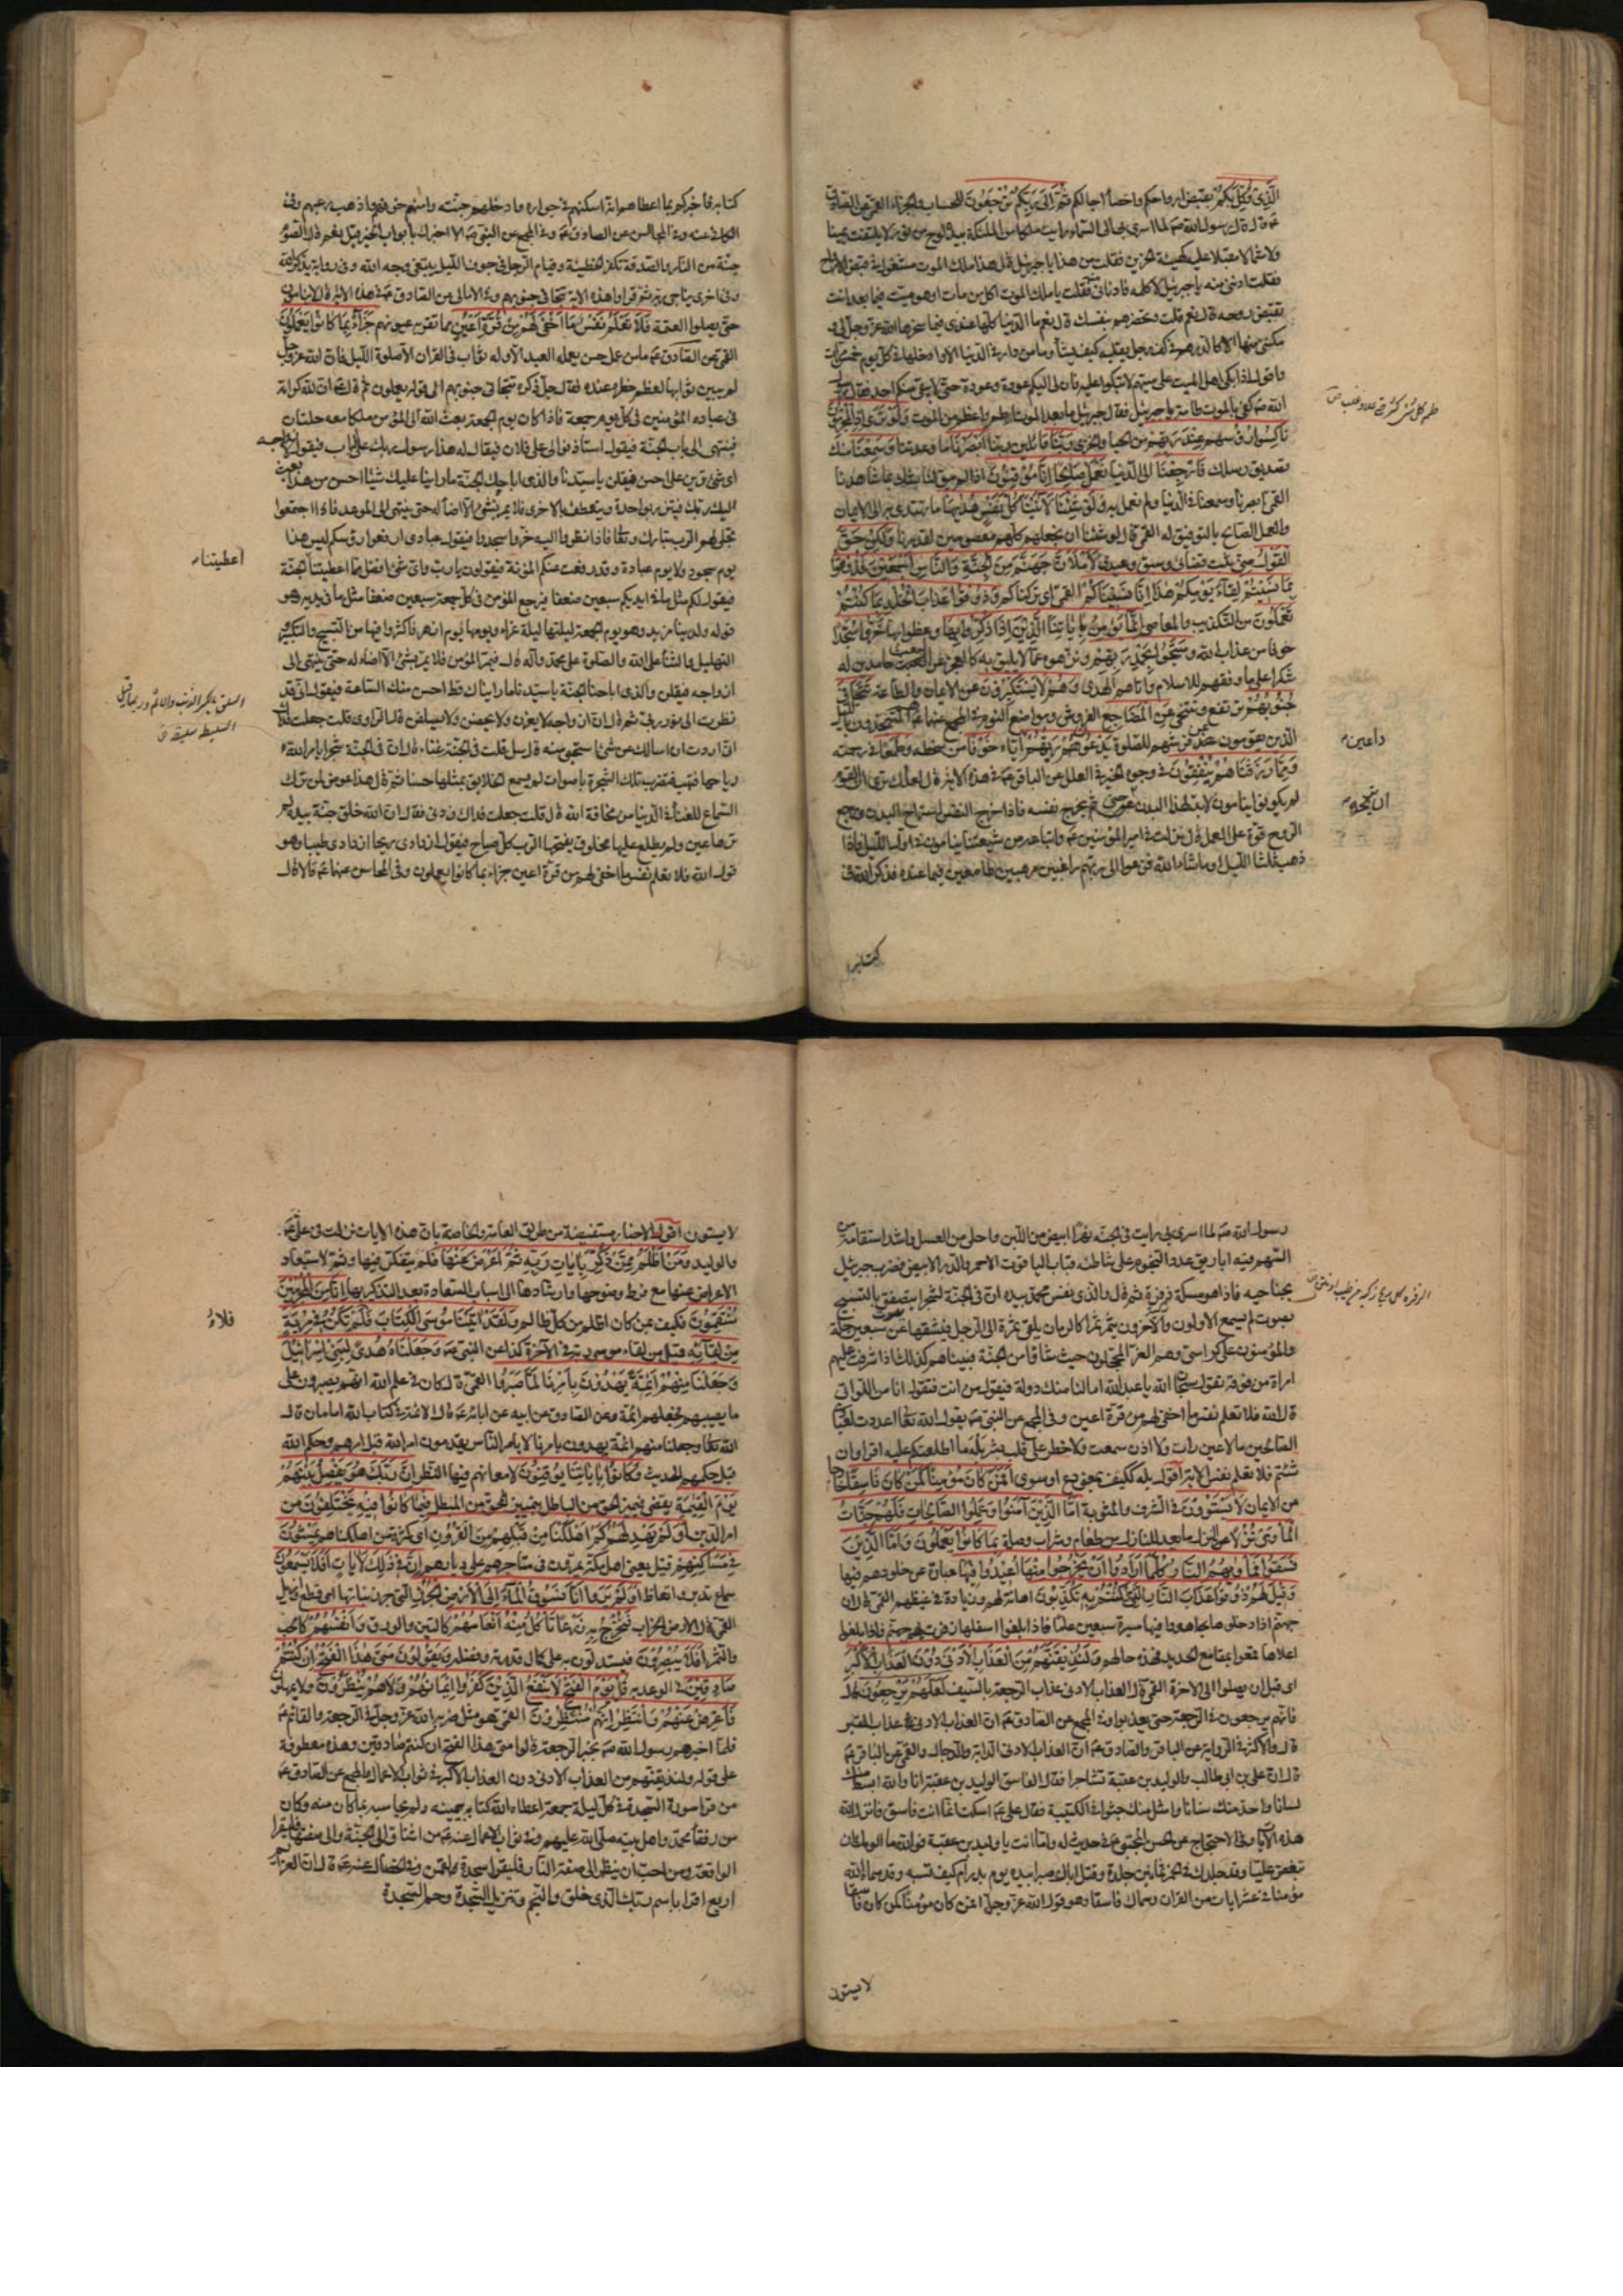 الَّذِي وُكِّلَ بِكُمْ بقبض ارواحكم واحصاء اجالكم ثُمَّ إِلَى رَبِّكُمْ تُرْجَعُونَ للحساب والجزاء القمى عن الصادق
عم قال قال رسول الله صم لما اسرى بى الى السماء رايت ملكا من الملئكة بيده لوح من نور لا يلتفت يمينا
ولا شمالا مقبلا عليه كهيئة الحزين فقلت من هذا يا جبرئيل قال هذا ملك الموت مشغول فى قبض الارواح
فقلت ادننى منه يا جبرئيل لاكلمه فادنانى فقلت يا ملك الموت اكل من مات او هو ميت فيما بعد انت
تقبض روحه قال نعم قلت وتحضرهم بنفسك قال نعم ما الدنيا كلها عندى فيما سخرها الله عز وجل لى و
مكننى منها الا كالدرهم فى كف الرجل يقلبه كيف يشاء وما من دار فى الدنيا الا وادخلها فى كل يوم خمس مرات
واقول اذا بكى اهل الميت على ميتهم لا تبكوا عليه فان لى اليكم عودة وعودة حتى لا يبقى منكم احد فقال رسول
الله صم كفى بالموت طامة يا جبرئيل فقال جبرئيل ما بعد الموت اطم واعظم من الموت وَلَوْ تَرَى إِذِ الْمُجْرِمُونَ
نَاكِسُوا رُؤُسِهِمْ عِنْدَ رَبِّهِمْ من الحيا والخزى رَبَّنَا قائلين ربنا أَبْصَرْنَا ما وعدتنا وَسَمِعْنَا منك
تصديق رسلك فَارْجِعْنَا الى الدنيا نَعْمَلْ صَالِحًا إِنَّا مُوقِنُونَ اذ لم يبق لنا شك بما شاهدنا
القمى ابصرنا وسمعنا فى الدنيا ولم نعمل به وَلَوْ شِئْنَا لَآتَيْنَا كُلَّ نَفْسٍ هُدَيهَا ما تهتدى به الى الايمان
والعمل الصالح بالتوفيق له القمى قال لو شئنا ان نجعلهم كلهم معصومين لقدرنا وَلَكِنْ حَقَّ
الْقَوْلُ مِنِّي ثبت قضائى وسبق وعيدى لَأَمْلَأَنَّ جَهَنَّمَ مِنَ الْجِنَّةِ وَالنَّاسِ أَجْمَعِينَ فَذُوقُوا
بِمَا نَسِيتُمْ لِقَاءَ يَوْمِكُمْ هَذَا إِنَّا نَسِينَاكُمْ القمى اى تركناكم وَذُوقُوا عَذَابَ الْخُلْدِ بِمَا كُنْتُمْ
تَعْمَلُونَ من التكذيب والمعاصى إِنَّمَا يُؤْمِنُ بِآيَاتِنَا الَّذِينَ إِذَا ذُكِّرُوا بِهَا وعظوا بها خَرُّوا سُجَّدًا
خوفا من عذاب الله وَسَبَّحُوا بِحَمْدِ رَبِّهِمْ ونزهوه عما لا يليق به كالعجز عن البعث حامدين له
شكرا على ما وفقهم للاسلام واتاهم الهدى وَهُمْ لَا يَسْتَكْبِرُونَ عن الايمان والطاعة تَتَجَافَى
جُنُوبُهُمْ ترتفع وتتنحى عَنِ الْمَضَاجِعِ الفرش ومواضع النوم فى المجمع عنهما عم هم المتهجدون بالليل
الذين يقومون عن فرشهم للصلوة يَدْعُونَ رَبَّهُمْ اياه خَوْفًا من سخطه وَطَمَعًا فى رحمته
وَمِمَّا رَزَقْنَاهُمْ يُنْفِقُونَ فى وجوه الخير فى العلل عن الباقر عم فى هذه الاية قال لعلك ترى ان القوم
لم يكونوا ينامون لابد لهذا البدن ان تريحه حتى يخرج نفسه فاذا خرج النفس استراح البدن ورجع
الروح قوة على العمل قال نزلت فى امير المؤمنين عم واتباعه من شيعتنا ينامون فى اول الليل فاذا
ذهب ثلثا الليل او ما شاء الله فزعوا الى ربهم راغبين مرهبين طامعين فيما عنده فذكر الله فى
داعين
ان يريحه
كتابه
كتابه فاخبركم بما اعطاهم انه اسكنهم فى جواره وادخلهم جنته وامنهم خوفهم واذهب رعبهم وفى
الكافى عنه وفى المجالس عن الصادق عم وفى المجمع عن النبى صم الا اخبرك بابواب الخير قيل نعم قال الصوم
جنة من النار والصدقة تكفر الخطيئة وقيام الرجل فى جوف الليل يبتغى وجه الله وفى رواية يذكر الله
وفى اخرى يناجى ربه ثم قرا هذه الاية تتجافى جنوبهم وفى الامالى عن الصادق عم فى هذه الاية قال لا ينامون
حتى يصلوا العتمة فَلَا تَعْلَمُ نَفْسٌ مَا أُخْفِيَ لَهُمْ مِنْ قُرَّةِ أَعْيُنٍ مما تقر به عيونهم جَزَاءً بِمَا كَانُوا يَعْمَلُونَ
القمى عن الصادق عم ما من عمل حسن يعمله العبد الا وله ثواب فى القران الا صلوة الليل فان الله عز وجل
لم يبين ثوابها لعظم خطره عنده فقال جل ذكره تتجافى جنوبهم الى قوله يعملون ثم قال عم ان لله كرامة
فى عباده المؤمنين فى كل يوم جمعة فاذا كان يوم الجمعة بعث الله الى المؤمن ملكا معه حلتان
فينتهى الى باب الجنة فيقول استاذنوا لى على فلان فيقال له هذا رسول ربك على الباب فيقول لازواجه
اى شئ ترين على احسن فيقلن يا سيدنا والذى اباحك الجنة ما راينا عليك شيئا احسن من هذا بعث
اليك ربك فيتزر بواحدة ويتعطف بالاخرى فلا يمر بشئ الا اضاء له حتى ينتهى الى الموعد فاذا اجتمعوا
تجلى لهم الرب تبارك وتعالى فاذا نظروا اليه خروا سجدا فيقول عبادى ارفعوا رؤسكم ليس هذا
يوم سجود ولا يوم عبادة وقد رفعت عنكم المؤنة فيقولون يا رب واى شئ افضل مما اعطيتنا الجنة
فيقول لكم مثل ما فى ايديكم سبعين ضعفا فيرجع المؤمن فى كل جمعة سبعين ضعفا مثل ما فى يديه وهو
قوله ولدينا مزيد وهو يوم الجمعة ليلتها ليلة غراء ويومها يوم ازهر فاكثروا فيها من التسبيح والتكبير و
التهليل والثناء على الله والصلوة على محمد وآله قال فيمر المؤمن فلا يمر بشئ الا اضاء له حتى ينتهى الى
ازواجه فيقلن والذى اباحنا الجنة يا سيدنا ما رايناك قط احسن منك الساعة فيقول انى قد
نظرت الى نور ربى ثم قال ان ازواجه لا يغرن ولا يحضن ولا يصلفن قال الراوى قلت جعلت فداك
انى اردت ان اسالك عن شئ استحيى منه قال سل قلت فى الجنة غناء قال ان فى الجنة شجرا يامر الله
رياحها فتهب فتضرب تلك الشجرة باصوات لم يسمع الخلايق بمثلها حسنا ثم قال هذا عوض لمن ترك
السماع للغناء فى الدنيا من مخافة الله قال قلت جعلت فداك زدنى فقال ان الله خلق جنة بيده لم
ترها عين ولم يطلع عليها مخلوق يفتحها الرب كل صباح فيقول ازدادى ريحا ازدادى طيبا وهو
قول الله فلا تعلم نفس ما اخفى لهم من قرة اعين جزاء بما كانوا يعملون وفى المحاسن عنهما عم قالا قال
اعطيتنا
رسول الله صم لما اسرى بى رايت فى الجنة نهرا ابيض من اللبن واحلى من العسل واشد استقامة من
السهم فيه اباريق عدد النجوم على شاطئه قباب الياقوت الاحمر والدر الابيض فضرب جبرئيل
بجناحيه فاذا هو مسكة ذفرة ثم قال والذى نفس محمد بيده ان فى الجنة لشجرا يتصفق بالتسبيح
بصوت لم يسمع الاولون والآخرون يثمر ثمرا كالرمان يلقى ثمرة الى الرجل فيشقها عن سبعين حلة
والمؤمنون على كراسى وهم الغر المحجلون حيث شاؤا من الجنة فبيناهم كذلك اذ اشرفت عليهم
امراة من فوقه تقول سبحان الله يا عبد الله اما لنا منك دولة فيقول من انت فتقول انا من اللواتى
قال الله فلا تعلم نفس ما اخفى لهم من قرة اعين وفى المجمع عن النبى صم يقول الله تعالى اعددت لعبادى
الصالحين ما لا عين رات ولا اذن سمعت ولا خطر على قلب بشر بله ما اطلعتكم عليه اقراوا ان
شئتم فلا تعلم نفس الاية اقول بله ككيف بمعنى دع او سوى أَفَمَنْ كَانَ مُؤْمِنًا كَمَنْ كَانَ فَاسِقًا خارجا
عن الايمان لَا يَسْتَوُونَ فى الشرف والمثوبة أَمَّا الَّذِينَ آمَنُوا وَعَمِلُوا الصَّالِحَاتِ فَلَهُمْ جَنَّاتُ
الْمَأْوَى نُزُلًا النزل ما يعد للنازل من طعام وشراب وصلة بِمَا كَانُوا يَعْمَلُونَ وَأَمَّا الَّذِينَ
فَسَقُوا فَمَأْوَيهُمُ النَّارُ كُلَّمَا أَرَادُوا أَنْ يَخْرُجُوا مِنْهَا أُعِيدُوا فِيهَا عبارة عن خلودهم فيها
وَقِيلَ لَهُمْ ذُوقُوا عَذَابَ النَّارِ الَّذِي كُنْتُمْ بِهِ تُكَذِّبُونَ اهانة لهم وزيادة فى غيظهم القمى قال ان
جهنم اذا دخلوها هووا فيها مسيرة سبعين عاما فاذا بلغوا اسفلها زفرت بهم جهنم فاذا بلغوا
اعلاها قمعوا بمقامع الحديد فهذه حالهم وَلَنُذِيقَنَّهُمْ مِنَ الْعَذَابِ الْأَدْنَى دُونَ الْعَذَابِ الْأَكْبَرِ
اى قبل ان يصلوا الى الاخرة القمى قال العذاب الادنى عذاب الرجعة بالسيف لَعَلَّهُمْ يَرْجِعُونَ قال
فانهم يرجعون فى الرجعة حتى يعذبوا وفى المجمع عن الصادق عم ان العذاب الادنى عذاب القبر
قال والاكثر فى الرواية عن الباقر والصادق عم ان العذاب الادنى الدابة والدجال والقمى عن الباقر عم
قال ان على بن ابى طالب والوليد بن عقبة تشاجرا فقال الفاسق الوليد بن عقبة انا والله ابسط منك
لسانا واحد منك سنانا وامثل منك جثوا فى الكتيبة فقال على عم اسكت انما انت فاسق فانزل الله
هذه الايات وفى الاحتجاج عن الحسن المجتبى عم فى حديث له واما انت يا وليد بن عقبة فوالله ما الومك ان
تبغض عليا وقد جلدك فى الخمر ثمانين جلدة وقتل اباك صبرا بيده يوم بدر ام كيف تسبه وقد سماه الله
مؤمنا فى عشر ايات من القران وسماك فاسقا وهو قول الله عز وجل افمن كان مؤمنا كمن كان فاسقا
لا يستون
لا يستون اقول الاخبار مستفيضة من طريق العامة والخاصة بان هذه الايات نزلت فى على عم
والوليد وَمَنْ أَظْلَمُ مِمَّنْ ذُكِّرَ بِآيَاتِ رَبِّهِ ثُمَّ أَعْرَضَ عَنْهَا فلم يتفكر فيها وثم لاستبعاد
الاعراض عنها مع فرط وضوحها وارشادها الى اسباب السعادة بعد التذكير بها إِنَّا مِنَ الْمُجْرِمِينَ
مُنْتَقِمُونَ فكيف ممن كان اظلم من كل ظالم وَلَقَدْ آتَيْنَا مُوسَى الْكِتَابَ فَلَا تَكُنْ فِي مِرْيَةٍ
مِنْ لِقَائِهِ قيل من لقاء موسى ربه فى الآخرة كذا عن النبى صم وَجَعَلْنَاهُ هُدًى لِبَنِي إِسْرَائِيلَ
وَجَعَلْنَا مِنْهُمْ أَئِمَّةً يَهْدُونَ بِأَمْرِنَا لَمَّا صَبَرُوا القمى قال كان فى علم الله انهم يصبرون على
ما يصيبهم فجعلهم ائمة وعن الصادق عن ابيه عن ابائه عم قال الائمة فى كتاب الله امامان قال
الله تعالى وجعلنا منهم ائمة يهدون بامرنا لا بامر الناس يقدمون امر الله قبل امرهم وحكم الله
قبل حكمهم الحديث وَكَانُوا بِآيَاتِنَا يُوقِنُونَ لامعانهم فيها النظر إِنَّ رَبَّكَ هُوَ يَفْصِلُ بَيْنَهُمْ
يَوْمَ الْقِيَمَةِ يقضى فيميز الحق من الباطل بتمييز المحق من المبطل فِيمَا كَانُوا فِيهِ يَخْتَلِفُونَ من
امر الدين أَوَلَمْ يَهْدِ لَهُمْ كَمْ أَهْلَكْنَا مِنْ قَبْلِهِمْ مِنَ الْقُرُونِ اى كثرة من اهلكناهم يَمْشُونَ
فِي مَسَاكِنِهِمْ قيل يعنى اهل مكة يمرون فى متاجرهم على ديارهم إِنَّ فِي ذَلِكَ لَآيَاتٍ أَفَلَا يَسْمَعُونَ
سماع تدبر واتعاظ أَوَلَمْ يَرَوْا أَنَّا نَسُوقُ الْمَاءَ إِلَى الْأَرْضِ الْجُرُزِ التى جرز نباتها اى قطع وازيل
القمى قال الارض الخراب فَنُخْرِجُ بِهِ زَرْعًا تَأْكُلُ مِنْهُ أَنْعَامُهُمْ كالتين والورق وَأَنْفُسُهُمْ كالحب
والثمر أَفَلَا يُبْصِرُونَ فيستدلون به على كمال قدرته وفضله وَيَقُولُونَ مَتَى هَذَا الْفَتْحُ إِنْ كُنْتُمْ
صَادِقِينَ فى الوعد به قُلْ يَوْمَ الْفَتْحِ لَا يَنْفَعُ الَّذِينَ كَفَرُوا إِيمَانُهُمْ وَلَا هُمْ يُنْظَرُونَ ولا يمهلون
فَأَعْرِضْ عَنْهُمْ وَانْتَظِرْ إِنَّهُمْ مُنْتَظِرُونَ القمى هو مثل ضربه الله عز وجل فى الرجعة والقائم عم
فلما اخبرهم رسول الله صم بخبر الرجعة قالوا متى هذا الفتح ان كنتم صادقين وهذه معطوفة
على قوله ولنذيقنهم من العذاب الادنى دون العذاب الاكبر فى ثواب الاعمال والمجمع عن الصادق عم
من قرا سورة السجدة فى كل ليلة جمعة اعطاه الله كتابه بيمينه ولم يحاسبه بما كان منه وكان
من رفقاء محمد واهل بيته صلى الله عليهم وفى ثواب الاعمال عنه عم من اشتاق الى الجنة والى صفتها فليقرا
الواقعة ومن احب ان ينظر الى صفة النار فليقرا سجدة لقمن وفى الخصال عنه عم قال ان العزائم
اربع اقرا باسم ربك الذى خلق والنجم وتنزيل السجدة وحم السجدة
فلا